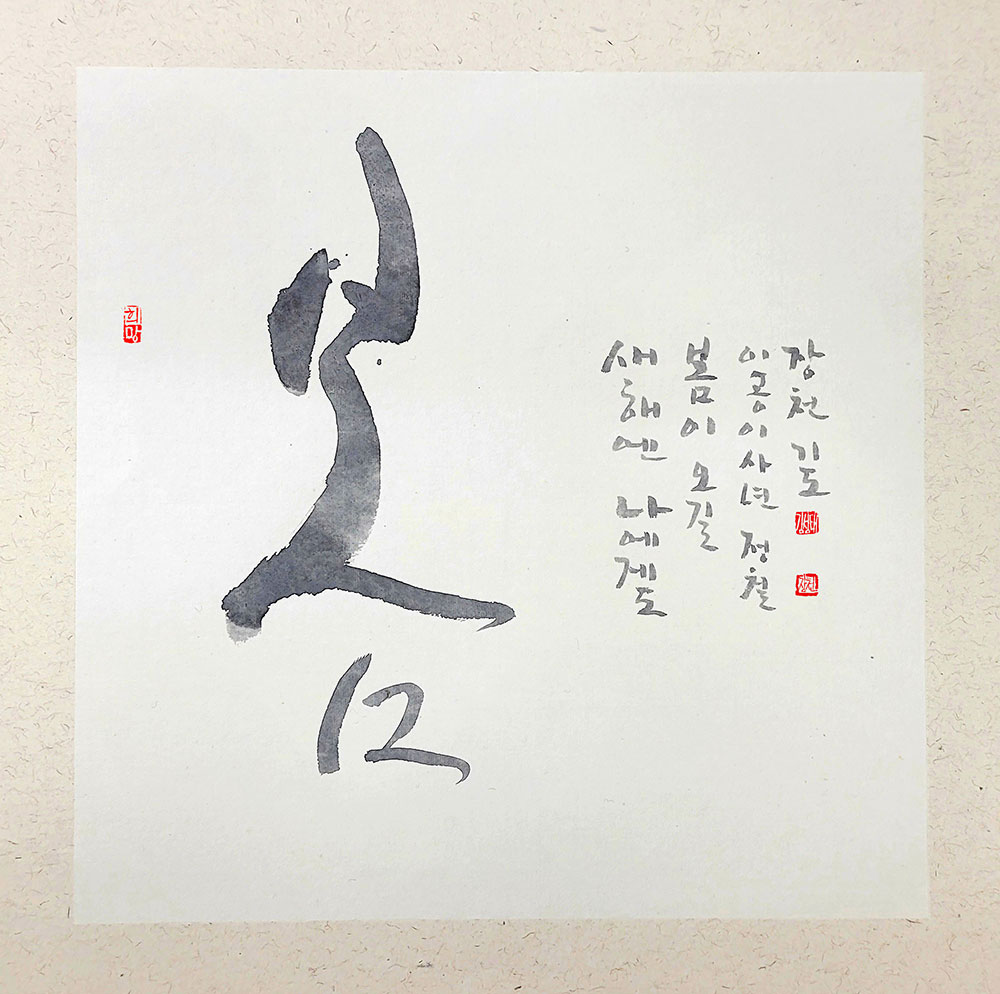 봄
새해엔 나에게도
봄이 오길
이공이사년
장천
희망
김영태
장천